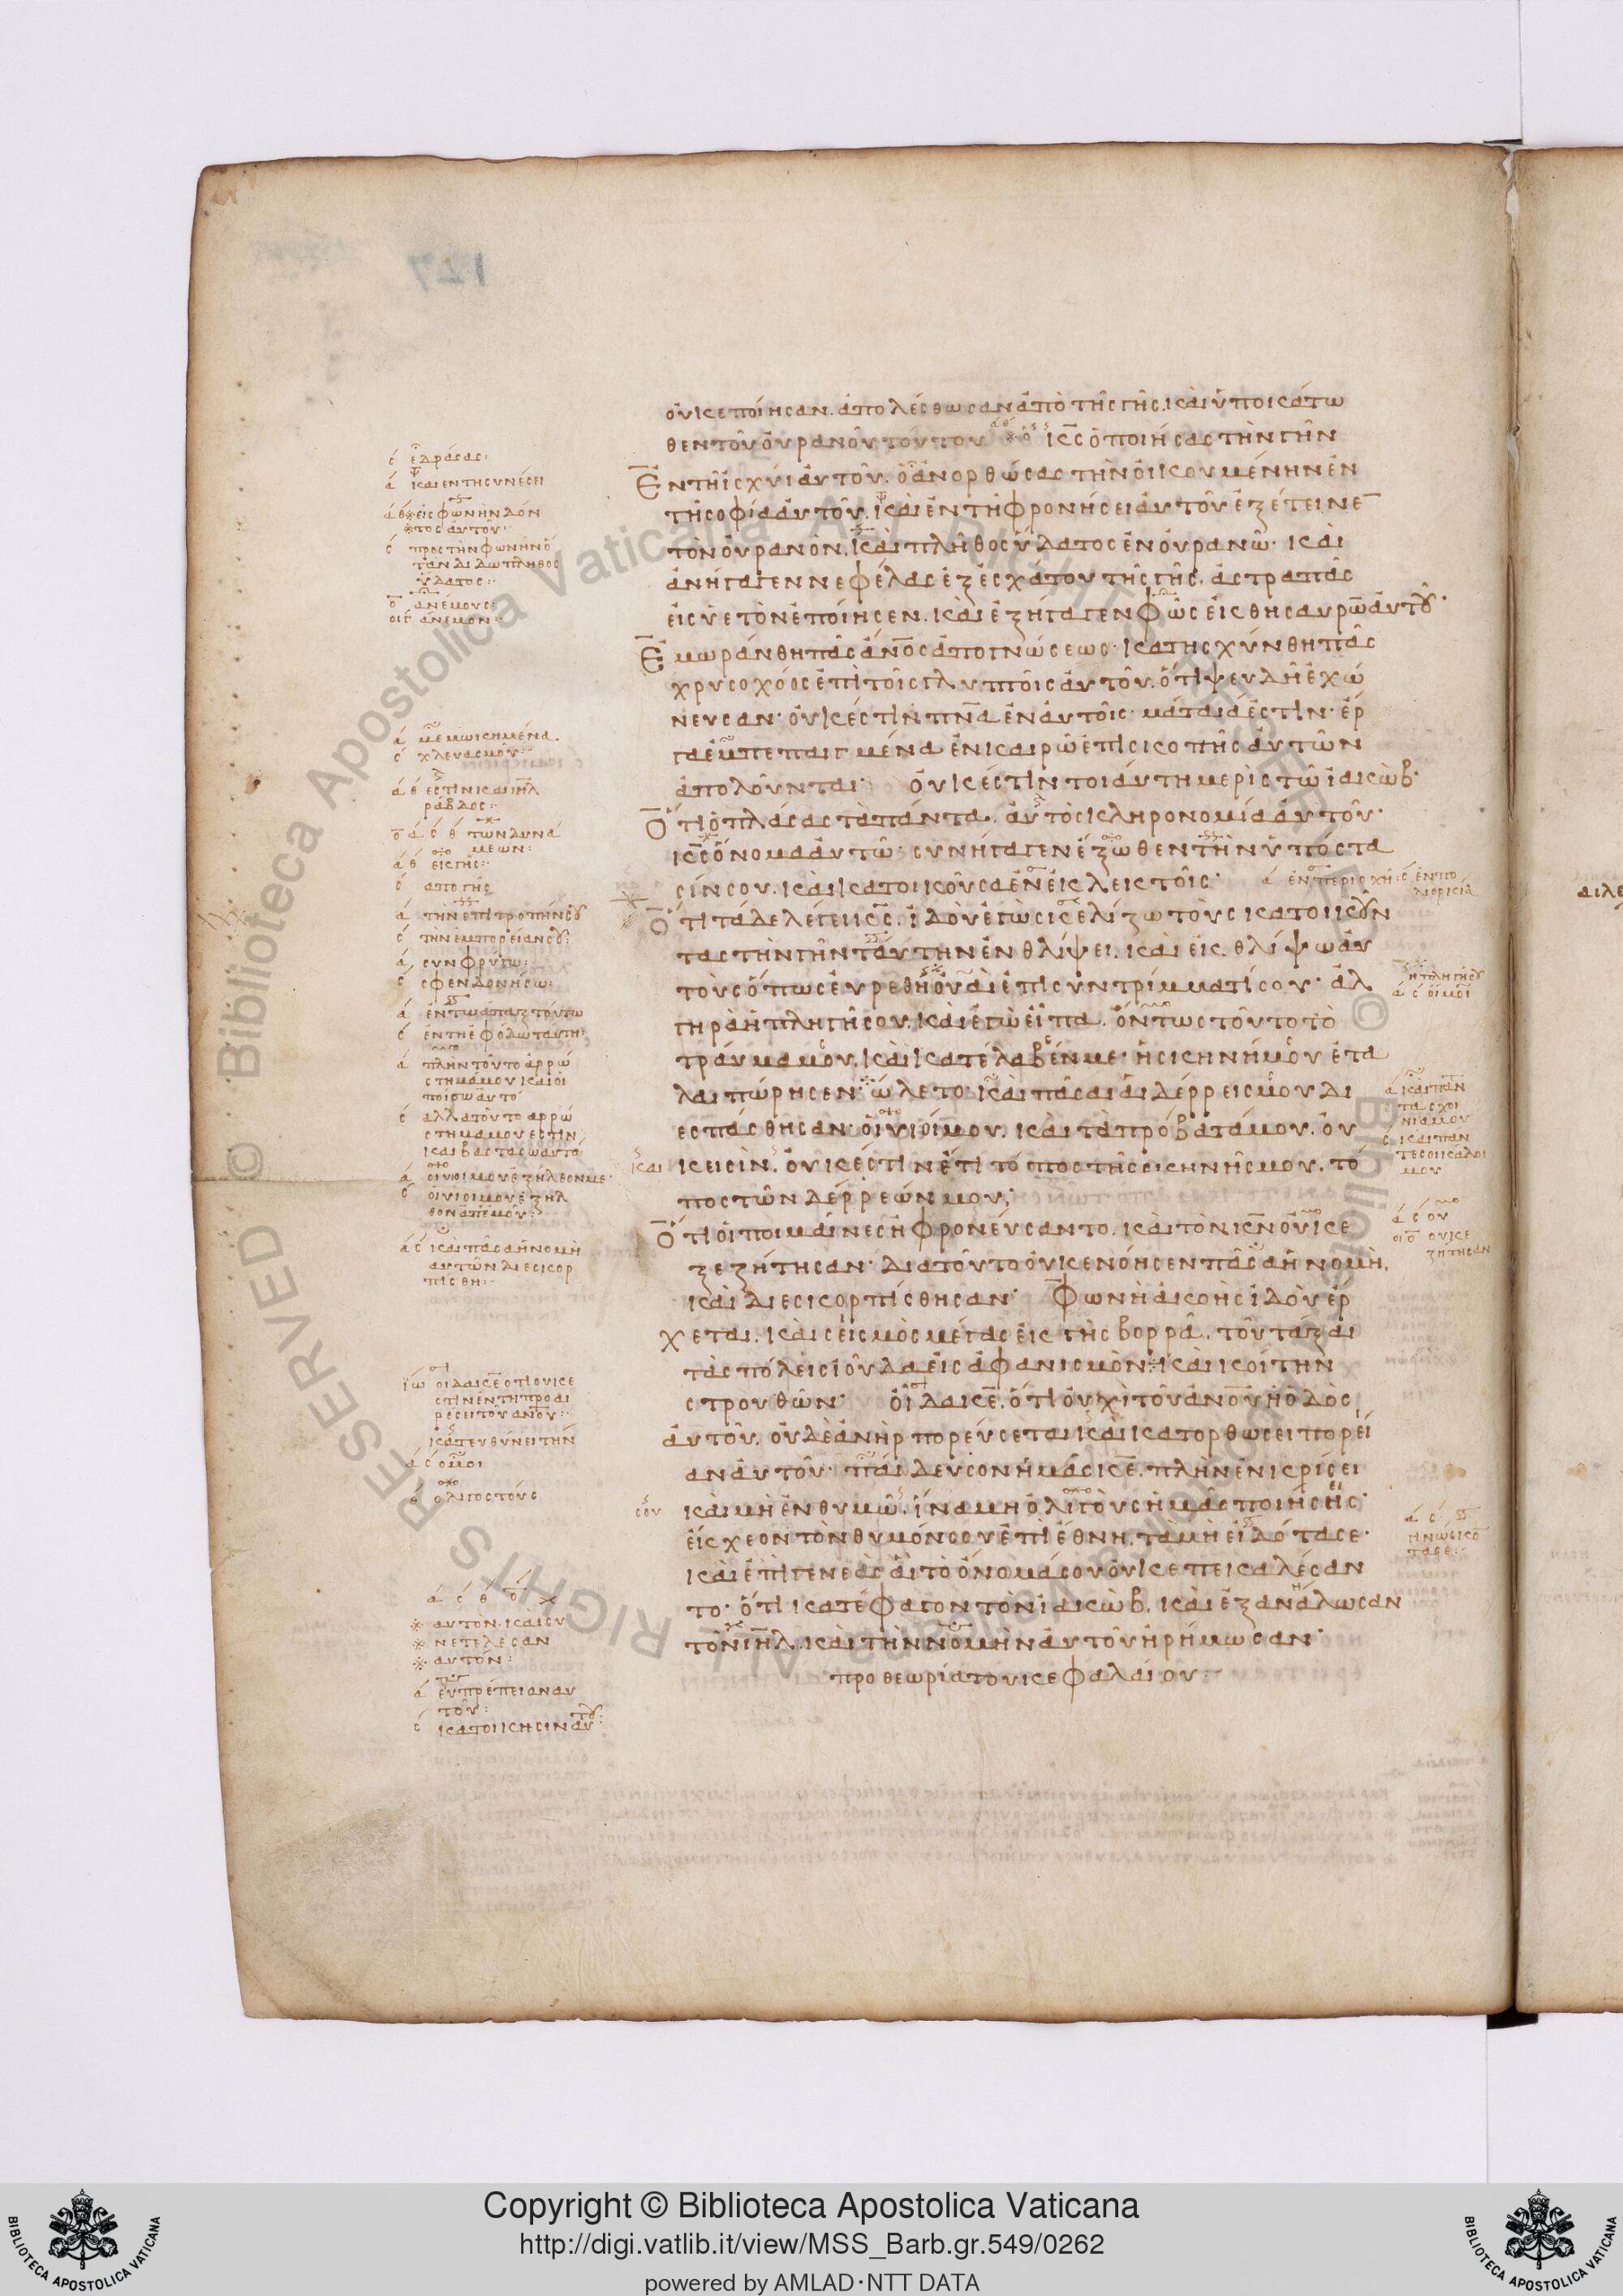 127
οὐκ ἐποίησαν. ἀπολέσθωσαν ἀπὸ τῆς γῆς, καὶ ὑποκάτω
θεν τοῦ οὐρανοῦ τούτου κ̅ς̅ ὁ ποιήσας τὴν γῆν
ἐν τῇ ἰσχύϊ αὐτοῦ. ὁ ἀνορθώσας τὴν οἰκουμένην ἐν
τῇ σοφία αὐτοῦ. καὶ ἐν τῇ φρονήσει αὐτοῦ ἐξέτεινε
τὸν οὐρανὸν. καὶ πλῆθος ὕδατος ἐν οὐρανῶ· καὶ
ἀνήγαγεν νεφέλας ἐξ ἐσχάτου τῆς γῆς. ἀστραπὰς
εἰς ὑετὸν ἐποίησεν. καὶ ἐξήγαγεν φῶς ἐκ θησαυρῶ̅ αὐτοῦ·
ἐμωράνθη πᾶς ἄν̅ο̅ς ἀπὸ γνώσεως· κατησχύνθη πᾶς
χρυσοχόος ἐπὶ τοῖς γλυπτοῖς αὐτοῦ. ὅτι ψευδῆ ἐχώ
νευσαν· οὐκ ἔστιν π̅ν̅α̅ ἐν αὐτοῖς· μάταιά ἐστιν· ἔρ
γα ἐμπεπαιγμένα ἐν καιρῶ ἐπισκοπῆς αὐτῶν
ἀπολοῦνται· οὐκ ἔστιν τοιαύτη μερὶς τῶ ἰακὼβ·
ὅτι ὁ πλάσας τὰ πάντα. αὐτὸς κληρονομία αὐτοῦ·
κ̅ς̅ ὄνομα αὐτῶ· συνήγαγεν ἔξωθεν τὴν ὑπόστα
σίν σου. καὶ κατοικοῦσα ἐν ἐκλεκτοῖς·
ὅτι τάδε λέγει κ̅ς̅. ἰδοὺ ἐγὼ σκελίζω τοὺς κατοικοῦν
τας τὴν γῆν ταύτην ἐν θλίψει. καὶ ἐκθλίψω αὐ
τοὺς ὅπως εὑρεθῆ οὐαὶ ἐπὶ συντρίμματί σου· ἀλ
γηρὰ ἡ πληγή σου. καὶ ἐγὼ εἶπα. ὄντως τοῦτο τὸ
τραῦμά μου. καὶ κατέλαβέν με· ἡ σκηνή μου ἐτα
λαιπώρησεν· ὤλετο· καὶ πᾶσαι αἱ δέρρεις μου δι
εσπάσθησαν· οἱ υἱοί μου. καὶ τὰ πρόβατά μου. οὐ
κ εἰσίν. οὐκ ἔστιν ἔτι τόπος τῆς σκηνῆς μου. τό
πος τῶν δέρρεών μου·
ὅτι οἱ ποιμαίνες ἠφρονεύσαντο. καὶ τὸν κ̅ν̅ οὐκ ἐ
ξεζήτησαν· διατοῦτο οὐκ ἐνόησεν πᾶσα ἡ νομὴ,
καὶ διεσκορπίσθησαν· φωνὴ ἀκοῆς ἰδοὺ ἔρ
χεται. καὶ σεισμὸς μέγας ἐκ γῆς βορρᾶ. τοῦ τάξαι
τὰς πόλεις ἰούδα εἰς ἀφανισμὸν. καὶ κοίτην
στρουθῶν· οἶδα κ̅ε̅. ὅτι οὐχὶ τοῦ ἀν̅ο̅υ ἡ ὁδὸς
αὐτοῦ. οὐδὲ ἀνὴρ πορεύσεται καὶ κατορθώσει πορεί
αν αὐτοῦ· παίδευσον ἡμᾶς κ̅ε̅. πλὴν ἐν κρίσει
καὶ μὴ ἐν θυμῶ. ἵνα μὴ ὀλίγους ἡμᾶς ποιήσῃς·
ἔκχεον τὸν θυμόν σου ἐπὶ ἔθνη. τὰ μὴ εἰδότα σε·
καὶ ἐπὶ γενεὰς αἳ τὸ ὄνομά σου οὐκ ἐπεκαλέσαν
το· ὅτι κατέφαγον τὸν ἰακὼβ. καὶ ἐξανάλωσαν
τὸν ι̅η̅λ̅. καὶ τὴν νομὴν αὐτοῦ ἠρήμωσαν·
προθεωρία τοῦ κεφαλαίου:
σ ἑδράσας:
α καὶ ἐν τῆ συνέσει
α θ εἰς φωνὴν δόν
τος αὐτοῦ:
σ πρὸς τὴν φωνὴν ὅ
ταν διδῶ πλῆθος
ὕδατος:
ἀνέμους
ἄνεμον:
α μεμωκημένα.
σ χλευασμοῦ:
α θ ἐστὶν καὶ ι̅η̅λ̅
ράβδος:
ο α σ θ τῶν δυνά
μεων:
α θ ἐκ γῆς:
σ ἀπὸ γῆς
α τὴν ἐπιτροπήν σου
σ τὴν ἐμπορείαν σου:
α συνφρύγω:
σ σφενδονήσω:
α ἐν τῶ ἅπαξ τούτω
σ ἐν τῆ ἐφόδω ταύτη:
α πλὴν τοῦτο ἀρρώ
στημά μου καὶ οἴ
σ ἀλλὰ τοῦτο ἀρρώ
στημά μου ἐστὶν
καὶ βαστάσω αὐτό
α οἱ υἱοί μου ἐξῆλθόν με
σ οἱ υἱοί μου ἐξῆλ
θον ἀπ᾽ ἐμοῦ:
α σ καὶ πᾶσα ἡ νομὴ
αὐτῶν διεσκορ
πίσθη:
ϊω οἶδα κ̅ε̅ ὅτι οὐκ ἔ
στιν ἐν τῆ προαι
ρέσει τοῦ ἀν̅ο̅υ:
κατευθύνει τὴν
θ ὀλιγοστούς
α σ θ ο
※ αὐτὸν. καὶ συ
※ νετέλεσαν
※ αὐτόν:
α εὐπρέπειαν αὐ
τοῦ:
σ κατοίκησιν αὐτοῦ:
α ἐν περιοχῆ: σ ἐν πο
λιορκία
ἡ πληγή σου
α σ οἴμοι
α καὶ πάν
τα σχοι
νία μου
σ καὶ πάν
τες οἱ κάλοι
μου
α σ οὐ
οὐκ ἐ
ζήτησαν
καὶ
σου
α σ
γνωσκο
τα σε:
Copyright © Biblioteca Apostolica Vaticana
http://digi.vatlib.it/view/MSS_Barb.gr.549/0262
powered by AMLAD·NTT DATA